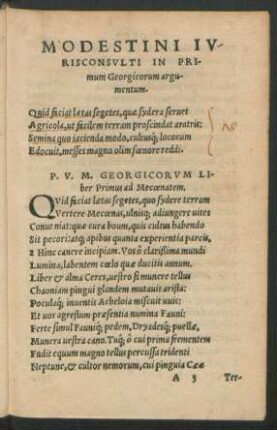 MODESTINI IV-
RISCONSVLTI IN PRI
mum Georgicorum argu
mentum.
Quid faciat lætas segetes, quæ sydera seruet
Agricola, ut facilem terram proscindat aratris:
Semina quo iacienda modo, cultusq; locorum
Edocuit, messes magno olim fœnore reddi.
P. V. M. GEORGICORVM LI
ber Primus ad Mecœnatem.
QVid faciat lætas segetes, quo sydere terram
Vertere Mecœnas, ulmisq; adiungere uites
Conueniat: quæ cura boum, quis cultus habendo
Sit pecori: atq; apibus quanta experientia parcis,
Hinc canere incipiam. Vos ô clarissima mundi
Lumina, labentem cœlo quæ ducitis annum.
Liber & alma Ceres, uestro si munere tellus
Chaoniam pingui glandem mutauit arista:
Poculaq; inuentis Acheloia miscuit uuis:
Et uos agrestum præsentia numina Fauni:
Ferte simul Fauniq; pedem, Dryadesq; puellæ,
Munera uestra cano. Tuq; ô cui prima frementem
Fudit equum magno tellus percussa tridenti
Neptune, & cultor nemorum, cui pinguia Cææ
A 3 Ter-